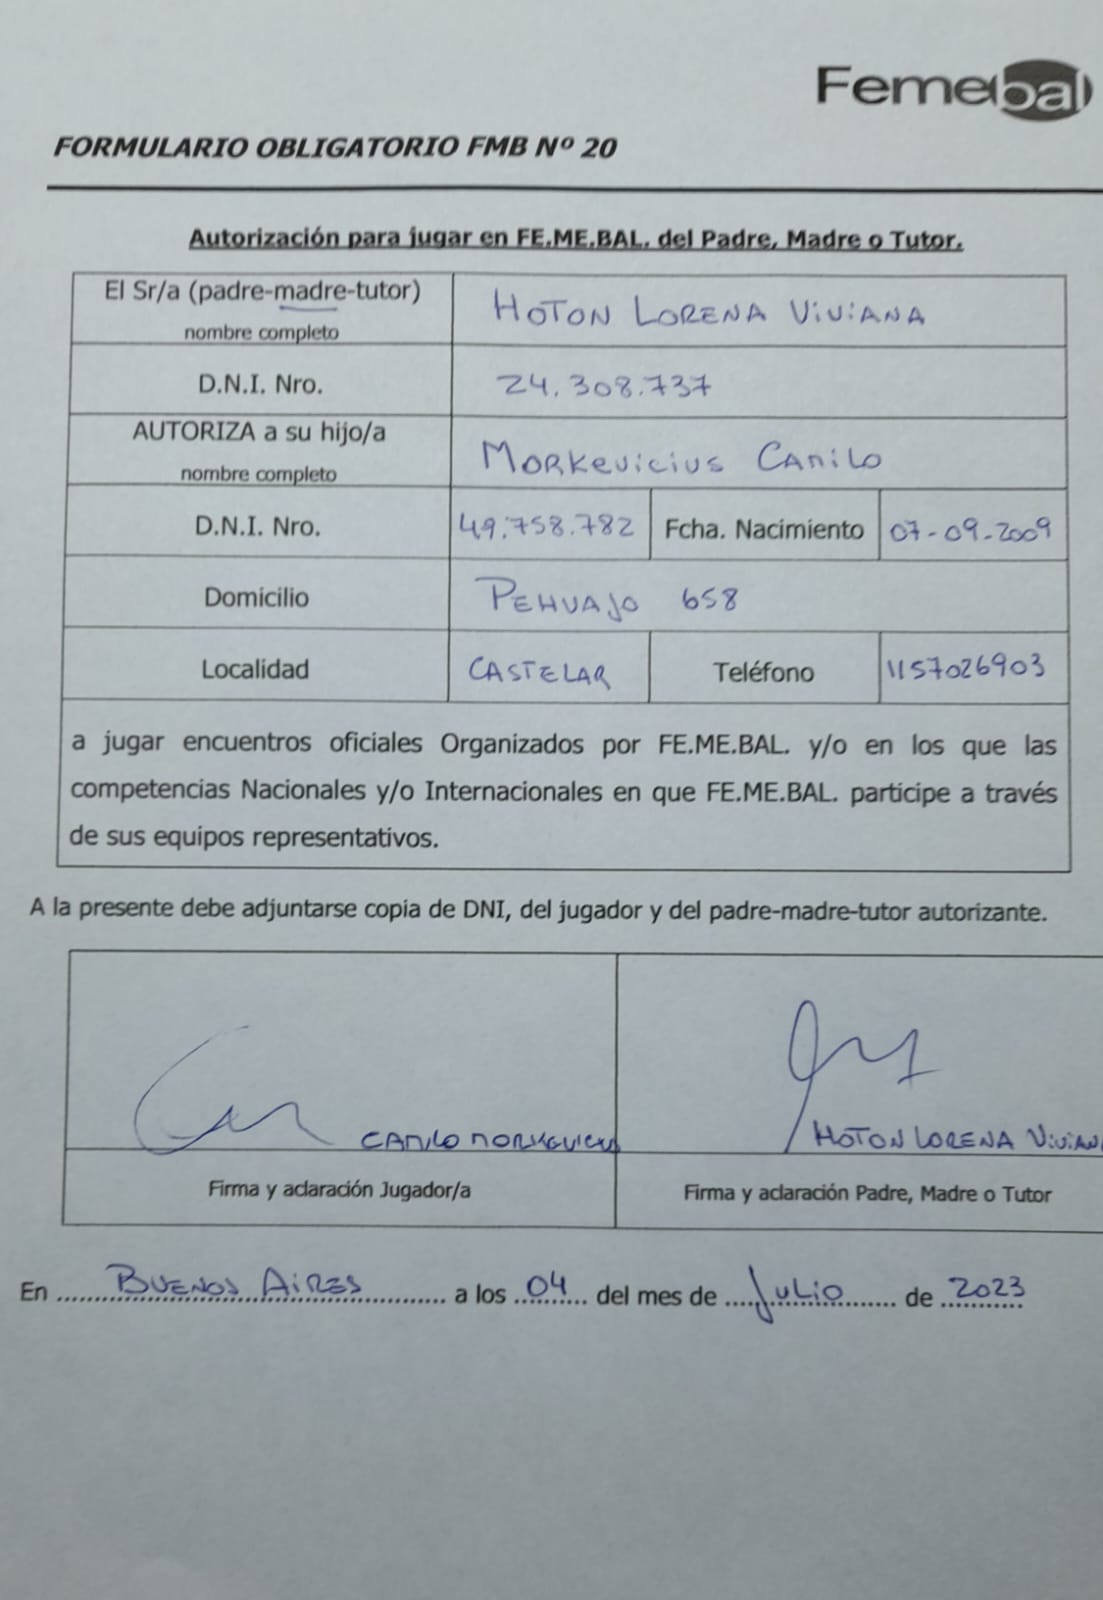 Femebal
FORMULARIO OBLIGATORIO FMB Nº 20
Autorización para jugar en FE.ME.BAL. del Padre, Madre o Tutor.
El Sr/a (padre-madre-tutor)
nombre completo
HOTON LORENA ViViANA
D.N.I. Nro.
24.308.737
AUTORIZA a su hijo/a
nombre completo
MORKEViCiUS CAMiLO
D.N.I. Nro. 49.758.782 Fcha. Nacimiento 07-09-2009
Domicilio PEHUAJO 658
Localidad CASTELAR Teléfono 1157026903
a jugar encuentros oficiales Organizados por FE.ME.BAL. y/o en los que las
competencias Nacionales y/o Internacionales en que FE.ME.BAL. participe a través
de sus equipos representativos.
A la presente debe adjuntarse copia de DNI, del jugador y del padre-madre-tutor autorizante.
CAMILO MORKEVICIUS
HOTON LORENA ViViANA
Firma y aclaración Jugador/a
Firma y aclaración Padre, Madre o Tutor
En BUENOS AiRES a los 04 del mes de JULiO de 2023